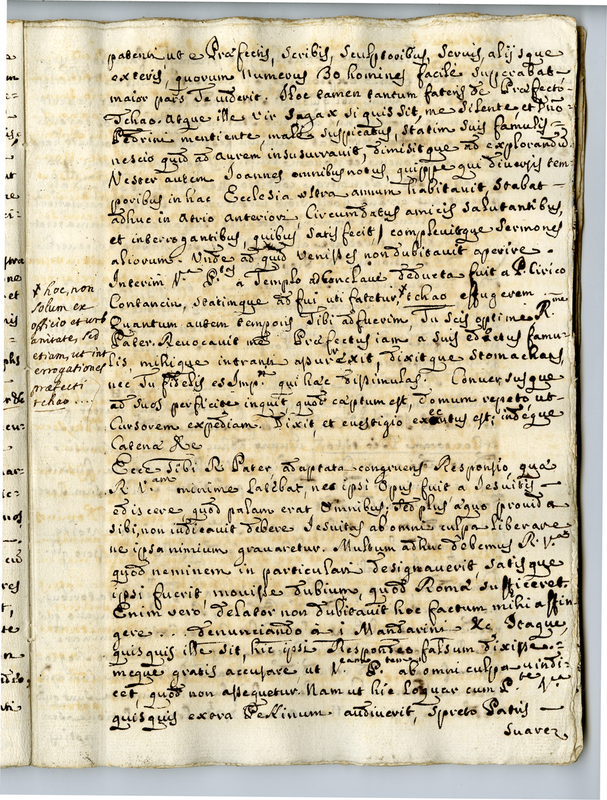 patenti ut e Præfectis, Scribis, Sculptoribus, Servis, alijsque
exteris, quorum numerus 30 homines facile superabat
maior pars
Tchao. Atque ille vir sagax si quis sit, me silente, et Dño
Pedrini mentiente, male suspicatus, statim suis famulis
nescio quid ad aurem insusurravit, dimisitque ad explorandũ
Noster autem Joannes omnibus notus, quippe qui diversis tem-
poribus in hac Ecclesia ultra annum habitavit, stabat
adhuc in atrio anteriori circumdatus amicis salutantibus,
et interrogantibus, quibus satisfecit, complevitque sermones
aliorum. Unde ad quid venisses non dubitavit aperire.
Interim Vª Pᵗᵃˢ a Templo ad Conclave deducta fuit a P. Cirico
Contancin, statimque adfui uti fatetur, + tchao effugerem
+ hoc, non
solum ex
officio et urb
anitate, sed
etiam, ut int
errogationes
præfecti
tchao ...
Quantum autem temporis tibi adfuerim, tu scis optime Rᵐᵉ
Pater. Revocavit me Præfectus iam a suis edoctus famu-
lis, mihique intranti assurexit, dixitque stomachatus,
nec tu fidelis es Impʳⁱ qui hæc dissimulas. Conversusque
ad suos perficite inquit quod captum est, domum repeto, ut
Cursorem expediam. Dixit, et evestigio est; indeque
Catena &c
Ecce tibi R. Pater adaptata congruens Responsio, quæ
R. Vᵃᵐ minime latebat, nec ipsi opus fuit a Jesuitis
adiscere quod palam erat omnibus; sed plus æquo provida
sibi, non iudicavit debere Jesuitas ab omni culpa liberare
ne ipsa nimium gravaretur. Multum adhuc debemus R. Vᵃᵉ
quod neminem in particulari designaverit, satisque
ipsi fuerit movisse dubium, quod Romæ sufficeret
Enim vero delator non dubitavit hoc factum mihi affin
gere ... denunciando à i Mandarini &c. Itaque,
quisquis ille sit, hic ipsi Respondeo falsum dixisse
meque gratis accusare ut Vᵉᵃᵐ P. tantum ab omni culpa vindi-
cet, quod non assequetur. Nam ut hic loquar cum P.ᵗᵉ Vª
quisquis extra Pekinum audiverit, spreto Patris
Suarez